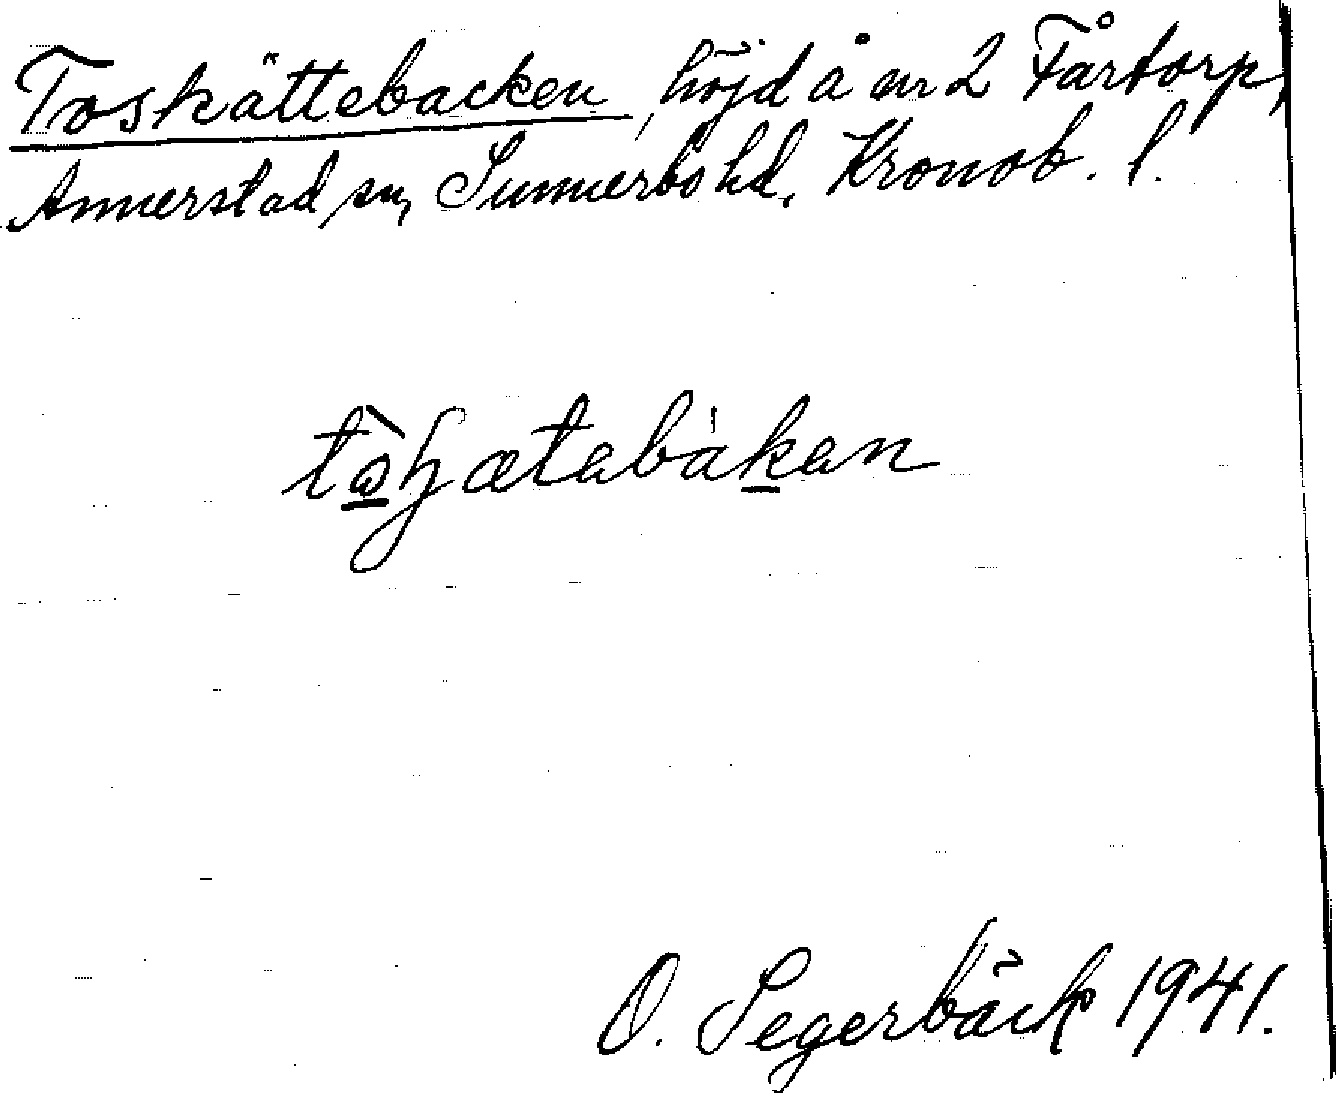 Toskättebacken, höjd å nr 2 Fårtorp,
Annerstad sn, Sunnerbo hd, Kronob. l.
O. Segerbäck 1941.